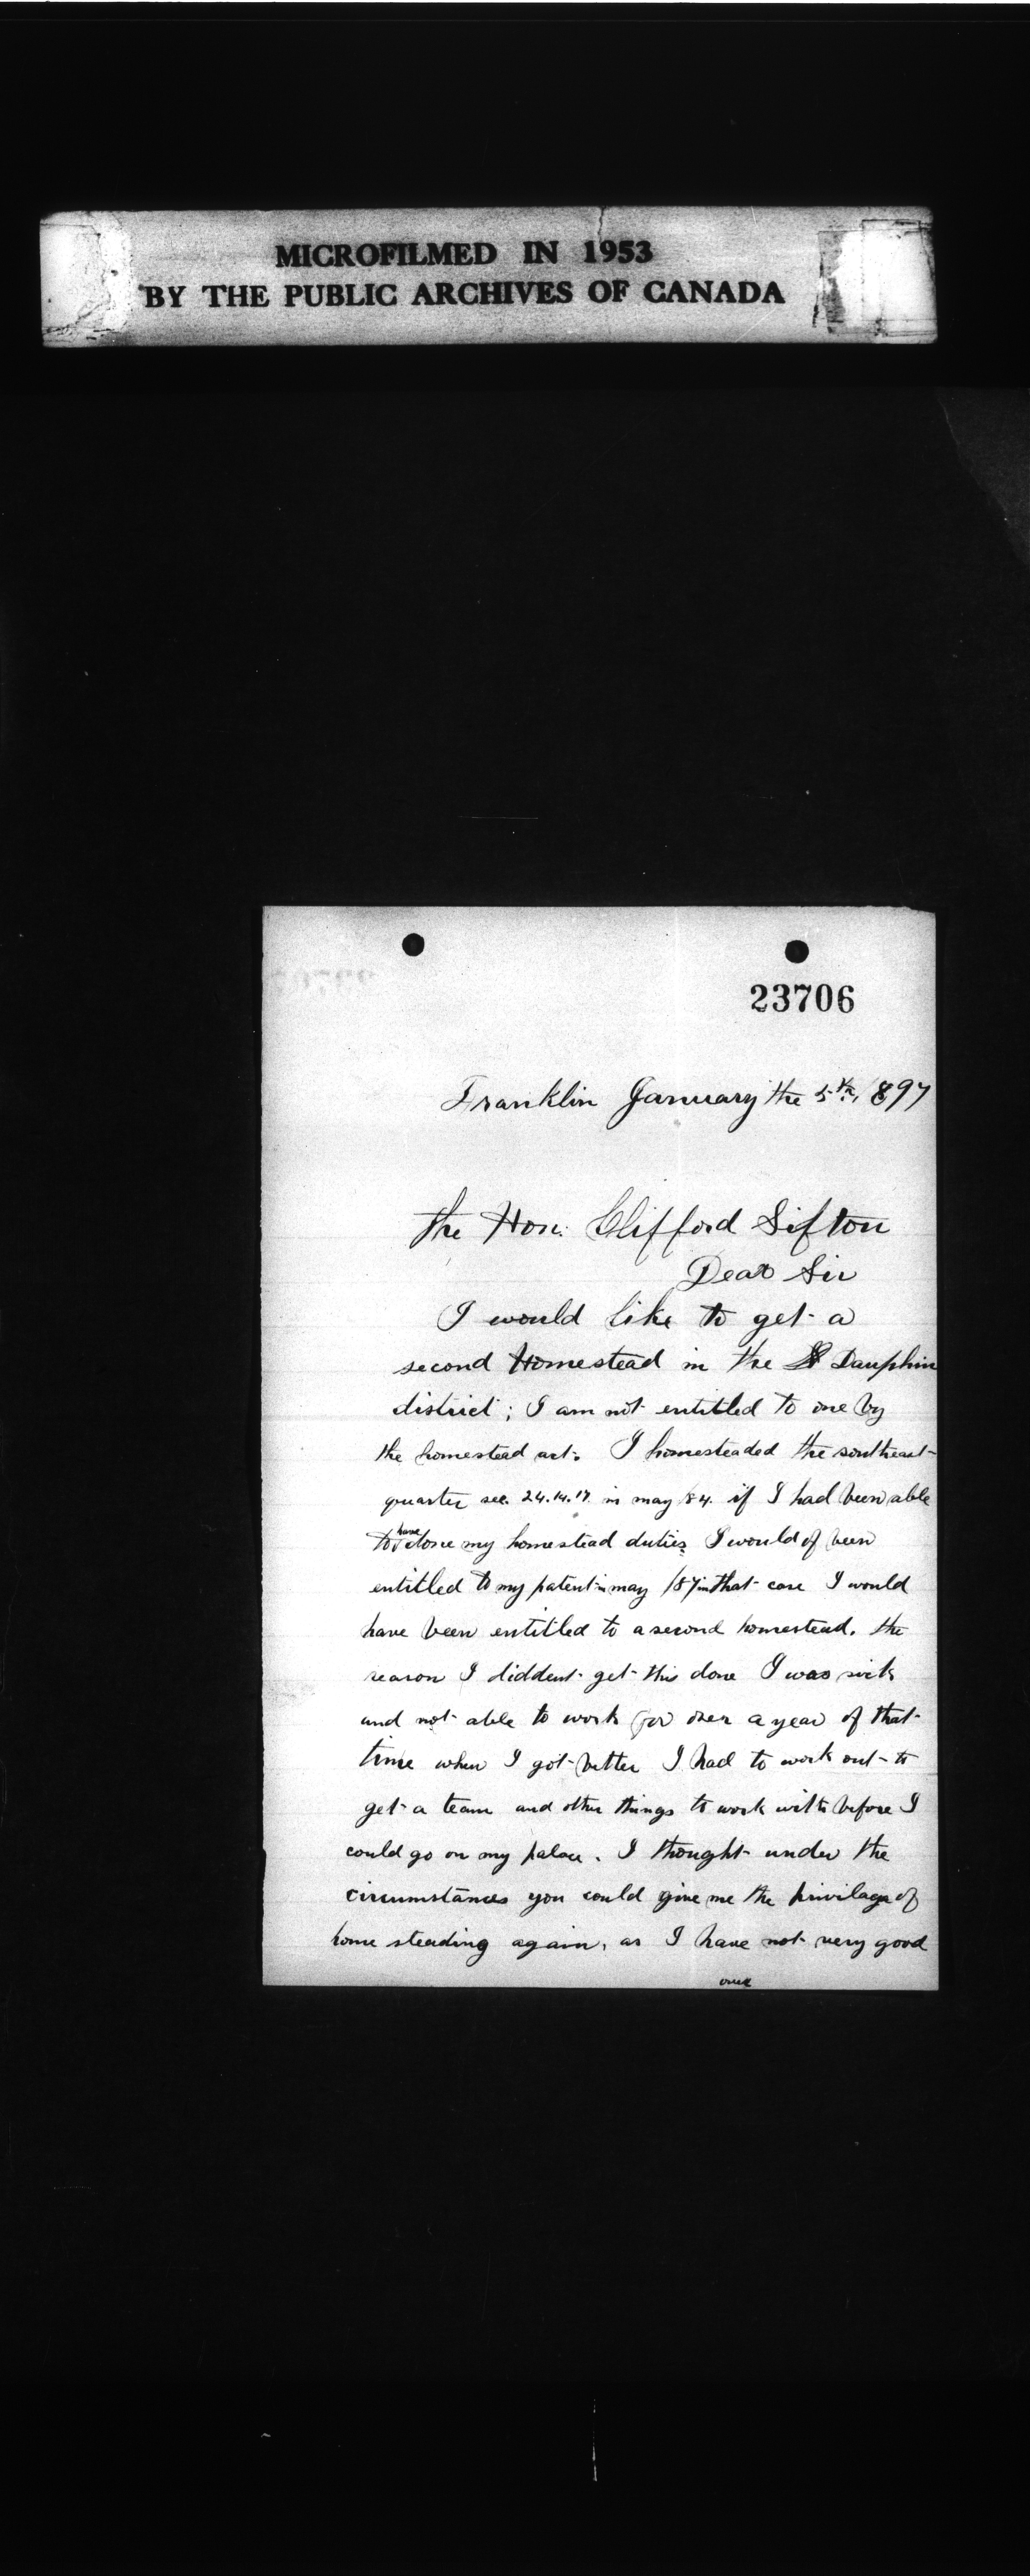 MICROFILMED IN 1953
BY THE PUBLIC ARCHIVES OF CANADA
23706
Franklin January the 5th, 1897
The Hon. Clifford Sifton
Dear Sir
I would like to get a
second Homestead in the Dauphin
district; I am not entitled to one by
the homestead act. I homesteaded the southeast
quarter sec. 24.14.17. in may 84. if I had been able
to have done my homestead duties I would of been
entitled to my patent in may /87 in that case I would
have been entitled to a second homestead. the
reason I diddent get this done I was sick
and not able to work for over a year of that
time when I got better I had to work out to
get a team and other things to work with before I
could go on my palace. I thought under the
circumstances you could give me the privilage of
home steading again, as I have not very good
one